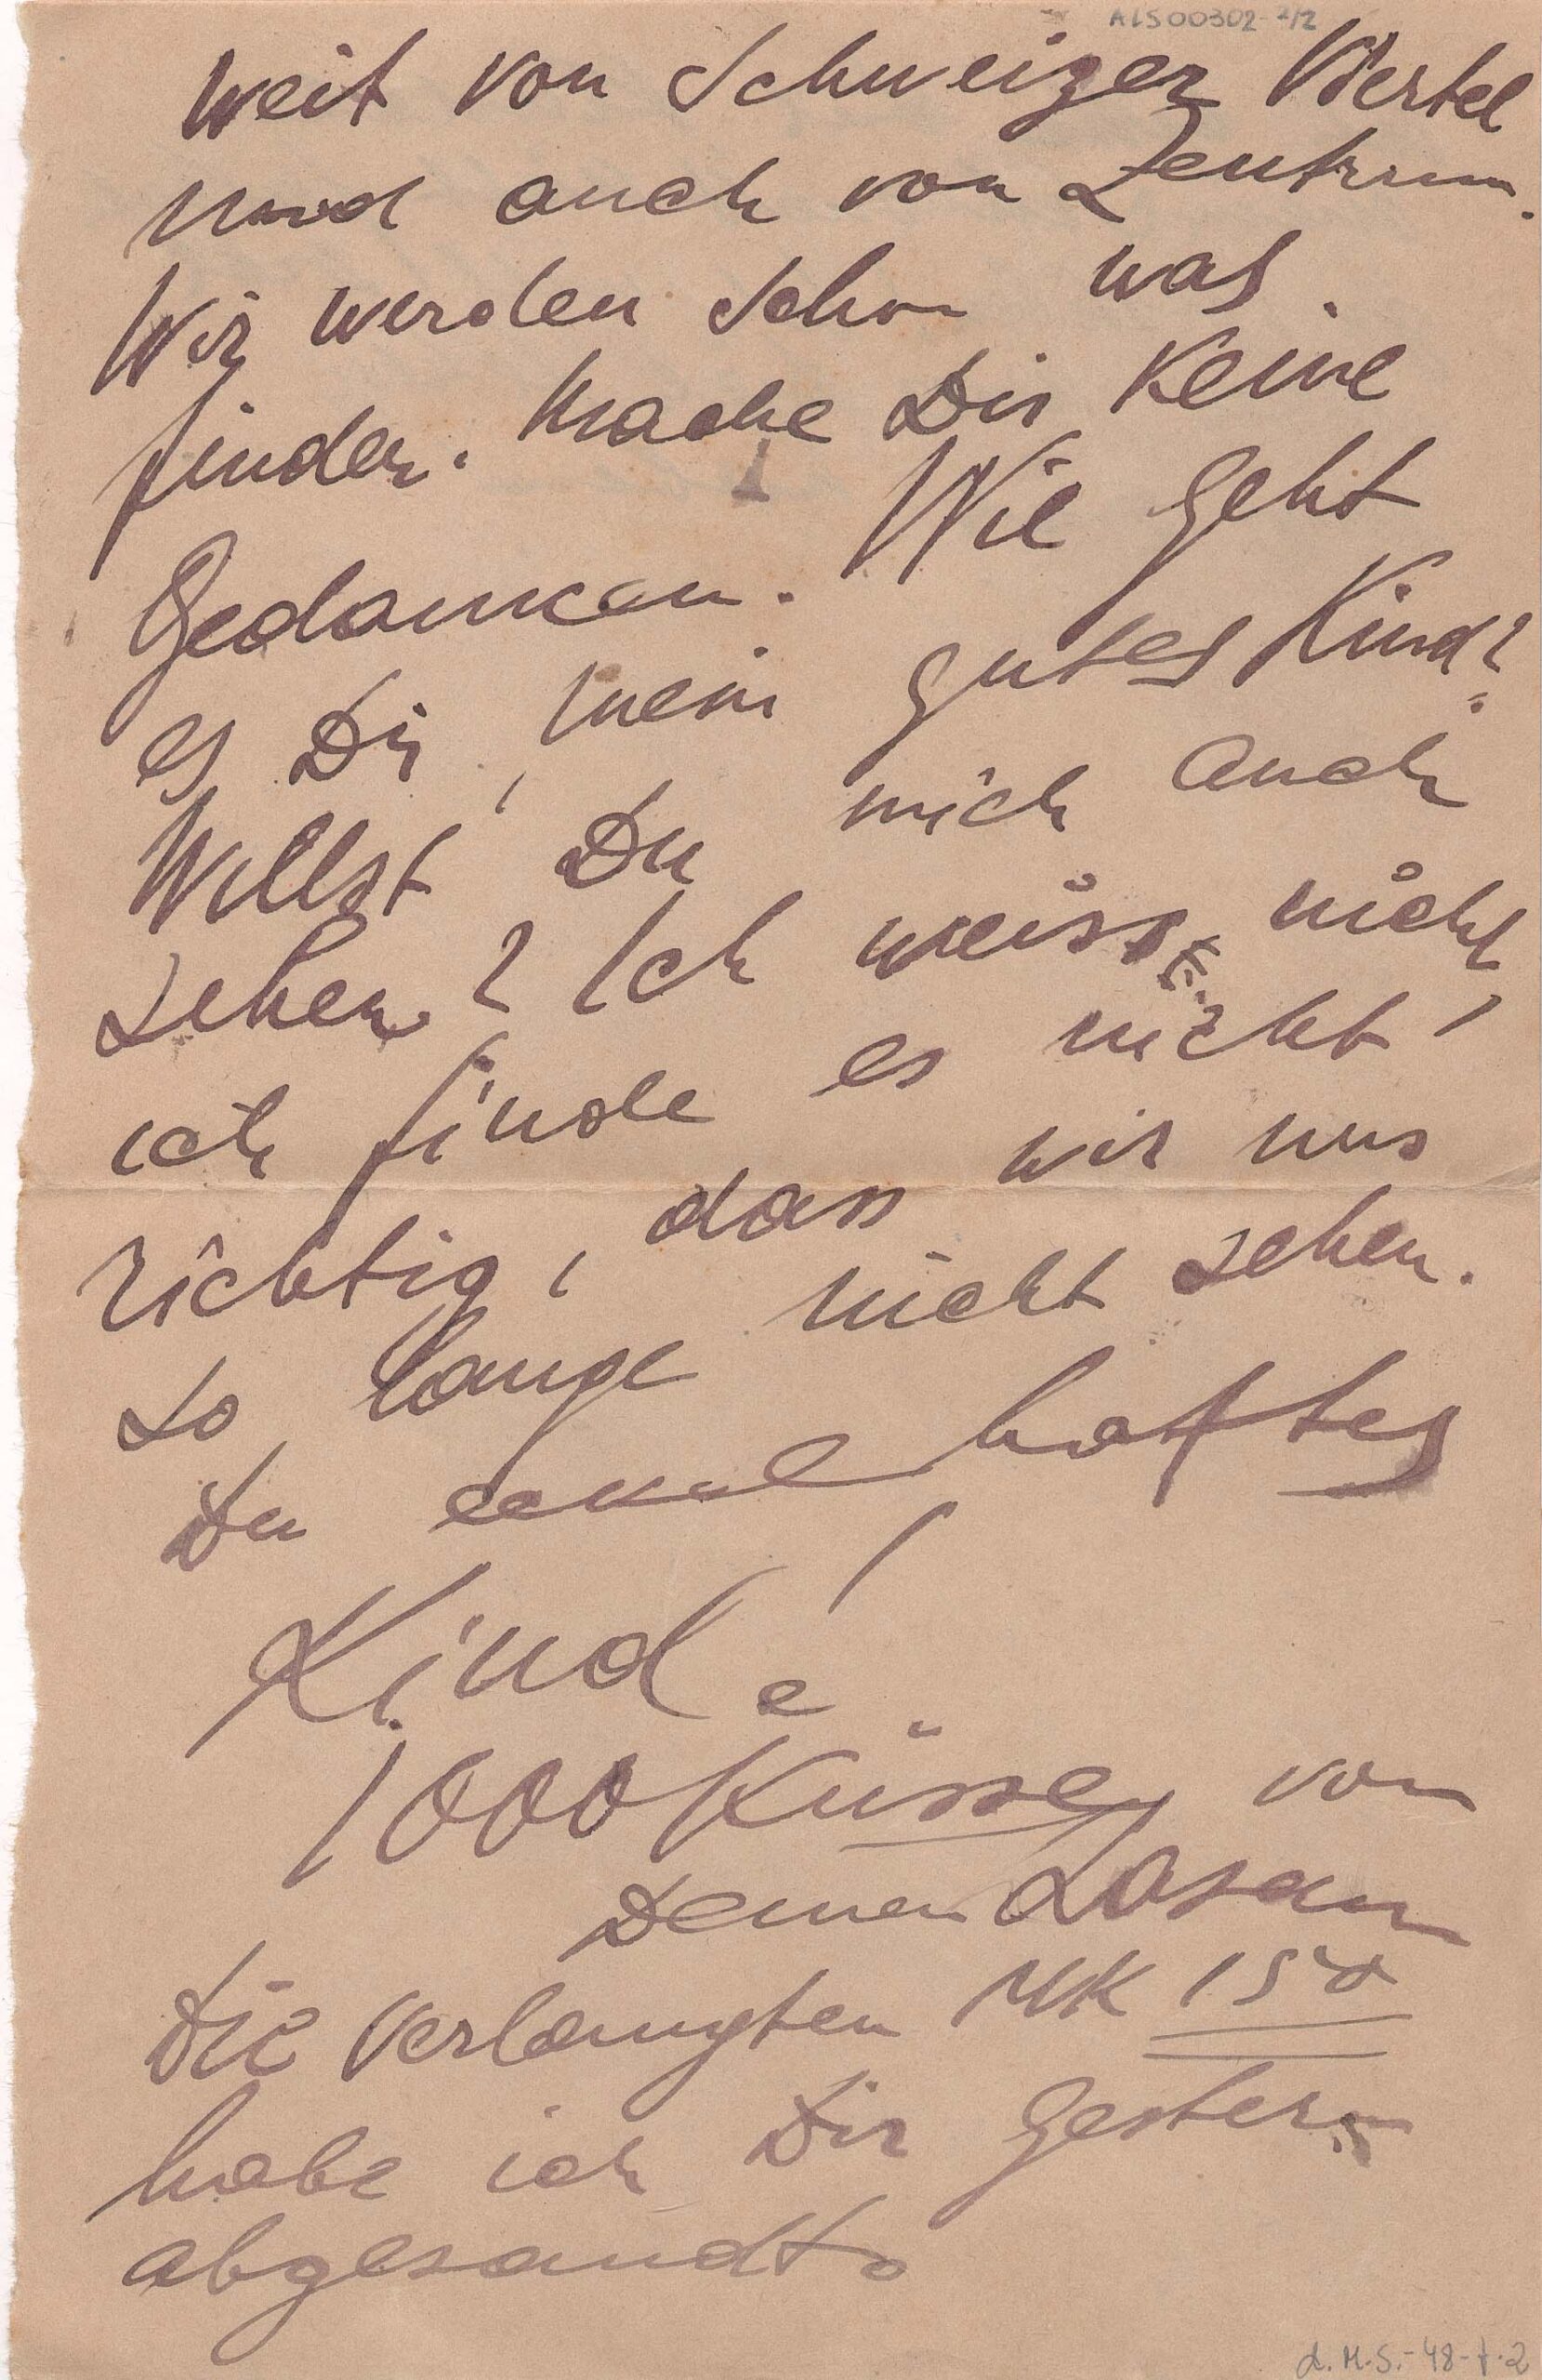 ALS00302-2/2
weit von Schweizer Viertel
und auch von Zentrum.
Wir werden schon was
finden. Mache Dir keine
Gedanken. Wie geht
es Dir, mein gutes Kind?
Willst Du mich auch
sehen? Ich weiss nicht,
ich finde es nicht
richtig, dass wir uns
so lange nicht sehen.
Du eckelhaftes
Kind!
1000 Küsse von
Deinen
Die verlangten MK 150
habe ich Dir gestern
abgesandt.
L.M.S.-48-f.2